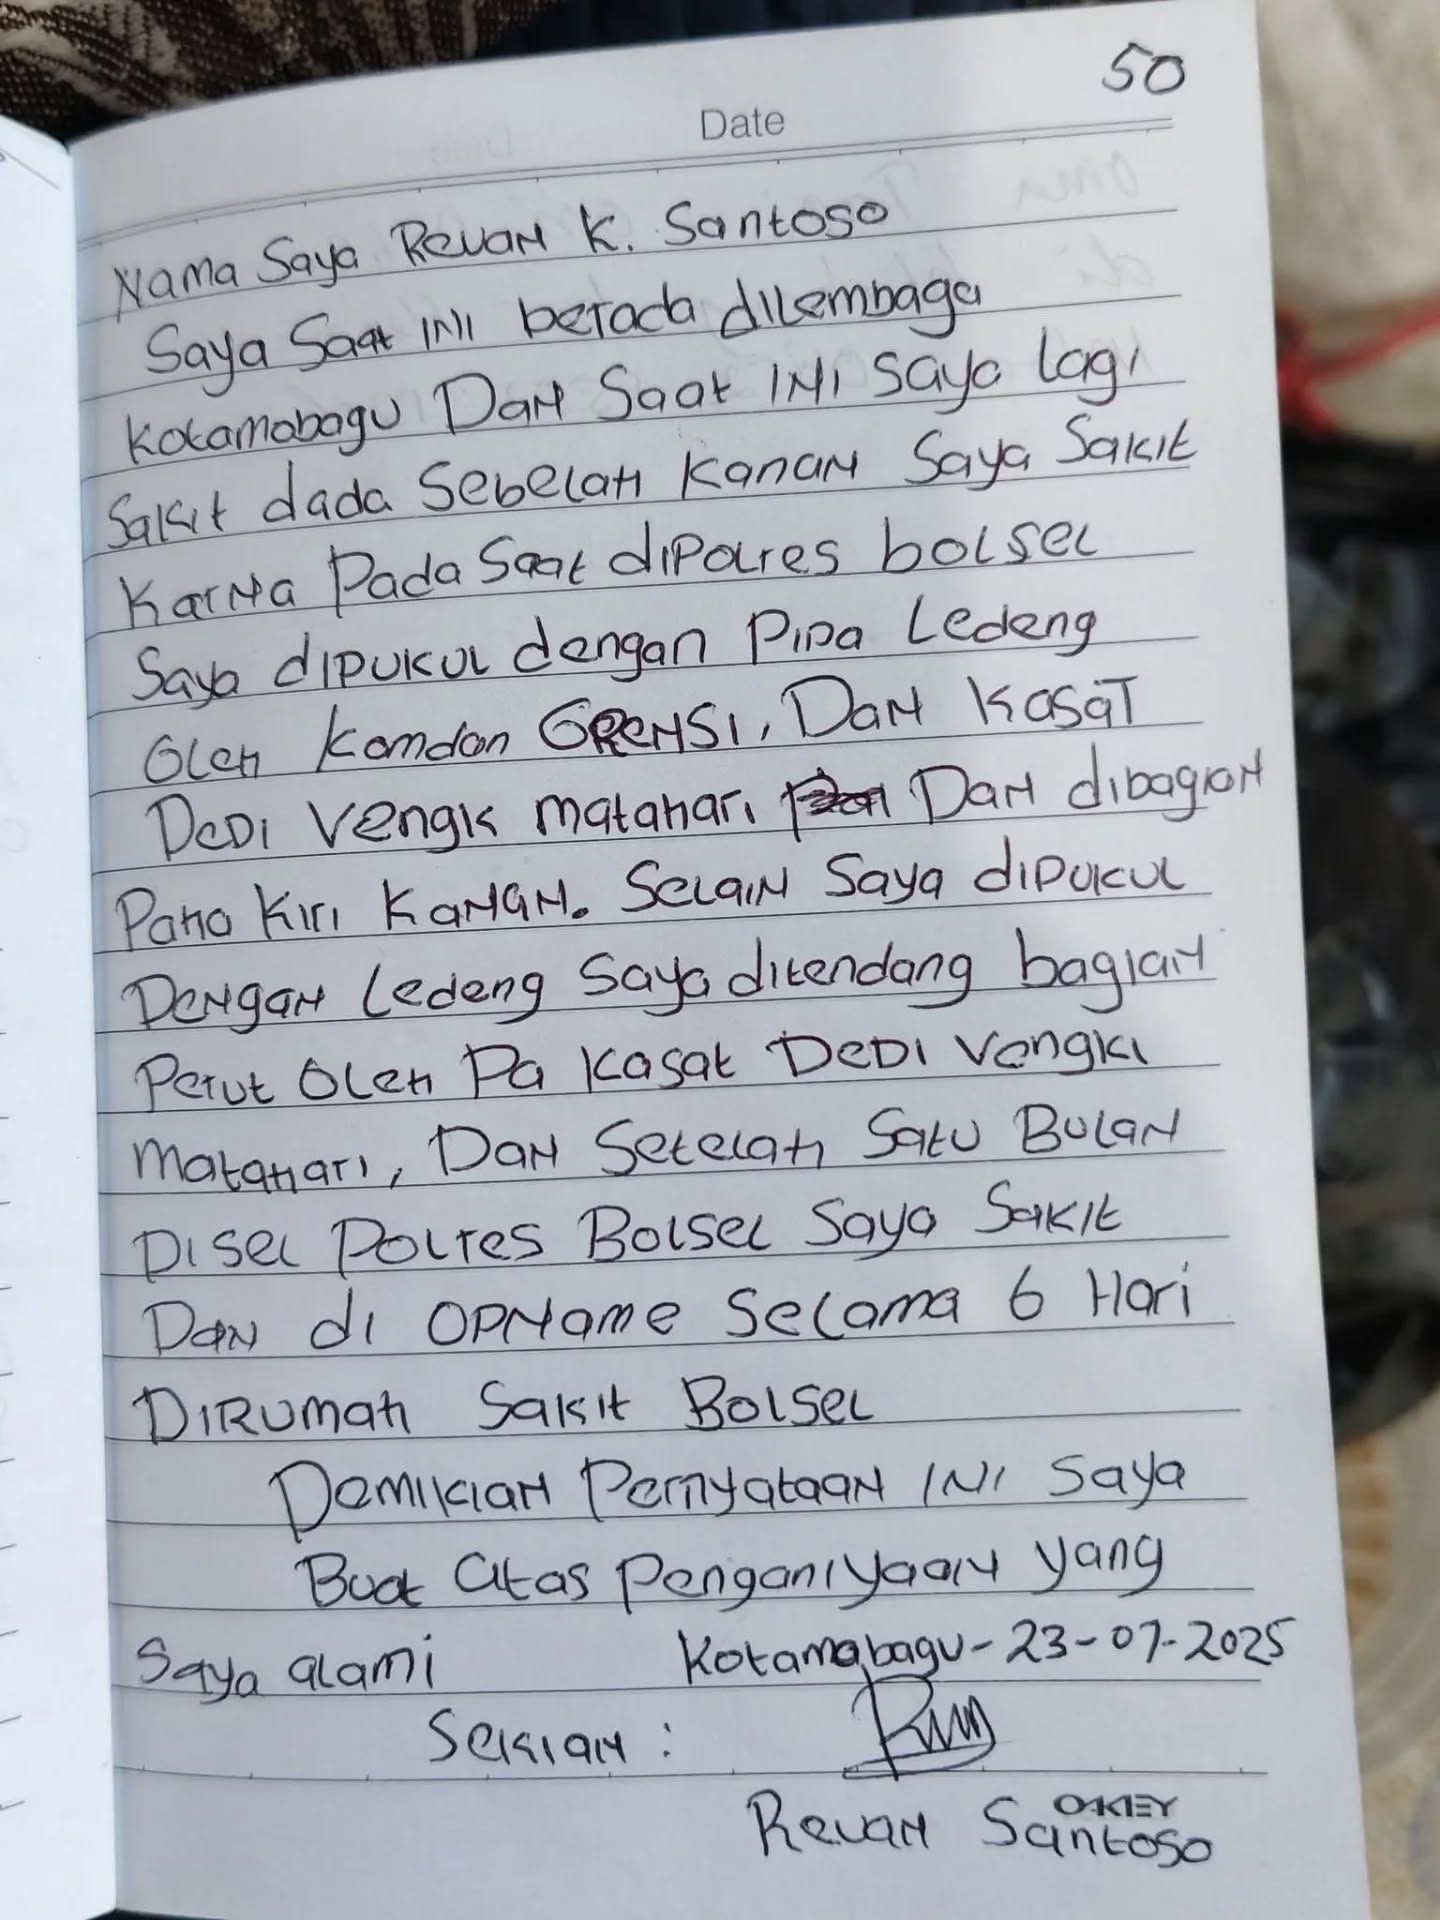 50
Date
Nama Saya Revan K. Santoso
Saya Saat ini berada dilembaga
Kotamobagu Dan Saat ini saya lagi
Sakit dada Sebelah Kanan Saya Sakit
Karna Pada Saat diPolres bolsel
Saya dipukul dengan Pipa Ledeng
Oleh Komdan GRENSI, Dan Kasat
DeDi Vengk matahari Dan dibagian
Paha Kiri Kanan. Selain Saya dipukul
Dengan Ledeng Saya ditendang bagian
Perut Oleh Pa Kasat DeDi Vengki
matahari, Dan Setelah Satu Bulan
Disel Polres Bolsel Saya Sakit
Dan di OPName Selama 6 Hari
DiRumah Sakit Bolsel
Demikian Pernyataan ini Saya
Buat atas Penganiyaan yang
Saya alami Kotamabagu-23-07-2025
Sekian :
Revan Santoso
OAKLEY